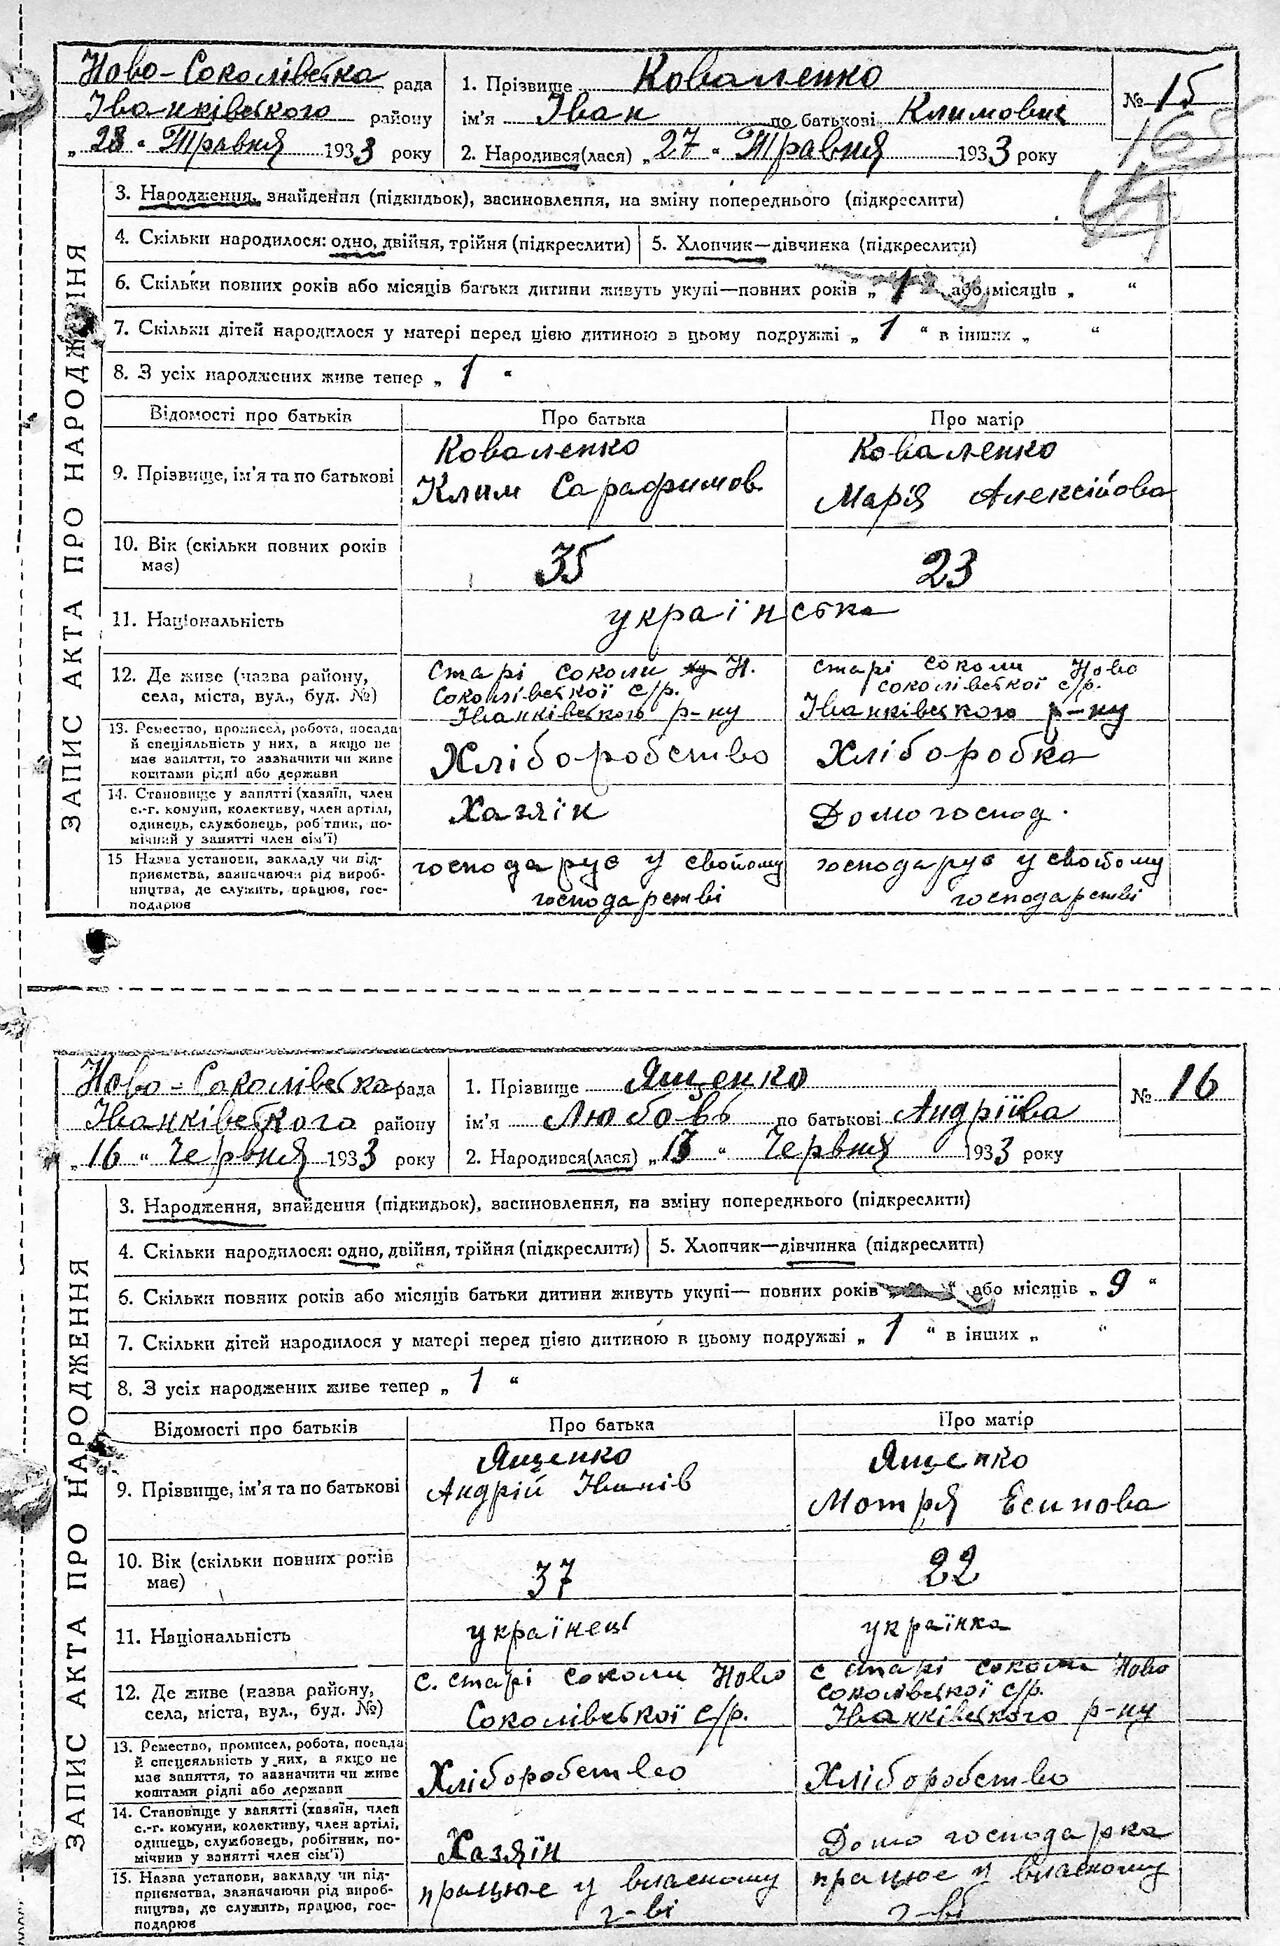 Ново-Соколівська рада
Іванківського району
„ 28 " Травня 1933 року
1. Прізвище Коваленко
ім'я Іван по батькові Климович
2. Народився(лася) „ 27 " Травня 1933 року
№ 15
165
ЗАПИС АКТА ПРО НАРОДЖЕННЯ
3. Народження, знайдення (підкидьок), засиновлення, на зміну попереднього (підкреслити)
4. Скільки народилося: одно, двійня, трійня (підкреслити)
5. Хлопчик—дівчинка (підкреслити)
6. Скільки повних років або місяців батьки дитини живуть укупі—повних років „ 1 " або місяців „ "
7. Скільки дітей народилося у матері перед цією дитиною в цьому подружжі „ 1 " в інших „ "
8. З усіх народжених живе тепер „ 1 "
Відомості про батьків
Про батька
Про матір
9. Прізвище, ім'я та по батькові
Коваленко
Клим Сарафимов.
Коваленко
Марія Алексійова
10. Вік (скільки повних років має)
35
23
11. Національність
українська
12. Де живе (назва району,
села, міста, вул., буд. №)
Старі соколи Н.
Соколівської с/р.
Іванківського р-ну
Старі соколи Ново
соколівської с/р.
Іванківського р-ну
13. Ремество, промисел, робота, посада
й спеціяльність у них, а якщо не
має заняття, то зазначити чи живе
коштами рідні або держави
Хліборобство
Хліборобка
14. Становище у занятті (хазяїн, член
с.-г. комуни, колективу, член артілі,
одинець, службовець, робітник, по-
мічний у занятті член сім'ї)
Хазяїн
Домогоспод.
15 Назва установи, закладу чи під-
приємства, зазначаючи рід вироб-
ництва, де служить, працює, гос-
подарює
господарує у свойому
господарстві
господарує у свойому
господарстві
Ново-Соколівська рада
Іванківського району
„ 16 " Червня 1933 року
1. Прізвище Ященко
ім'я Любовь по батькові Андріїва
2. Народився(лася) „ 13 " Червня 1933 року
№ 16
ЗАПИС АКТА ПРО НАРОДЖЕННЯ
3. Народження, знайдення (підкидьок), засиновлення, на зміну попереднього (підкреслити)
4. Скільки народилося: одно, двійня, трійня (підкреслити)
5. Хлопчик—дівчинка (підкреслити)
6. Скільки повних років або місяців батьки дитини живуть укупі— повних років „ " або місяців „ 9 "
7. Скільки дітей народилося у матері перед цією дитиною в цьому подружжі „ 1 " в інших „ "
8. З усіх народжених живе тепер „ 1 "
Відомості про батьків
Про батька
Про матір
9. Прізвище, ім'я та по батькові
Ященко
Андрій Іванів
Ященко
Мотря Есипова
10. Вік (скільки повних років має)
37
22
11. Національність
українець
українка
12. Де живе (назва району,
села, міста, вул., буд. №)
с. старі соколи Ново
Соколівської с/р.
с старі соколи Ново
соколівської с/р.
Іванківського р-ну
13. Ремество, промисел, робота, посада
й спецсяльність у них, а якщо не
має заняття, то зазначити чи живе
коштами рідні або держави
Хліборобство
Хліборобство
14. Становище у занятті (хазяїн, член
с.-г. комуни, колективу, член артілі,
одинець, службовець, робітник, по-
мічнив у занятті член сім'ї)
Хазяїн
Домо господарка
15. Назва установи, закладу чи під-
приємства, зазначаючи рід вироб-
ництва, де служить, працює, гос-
подарює
працює у власному
г-ві
працює у власному
г-ві